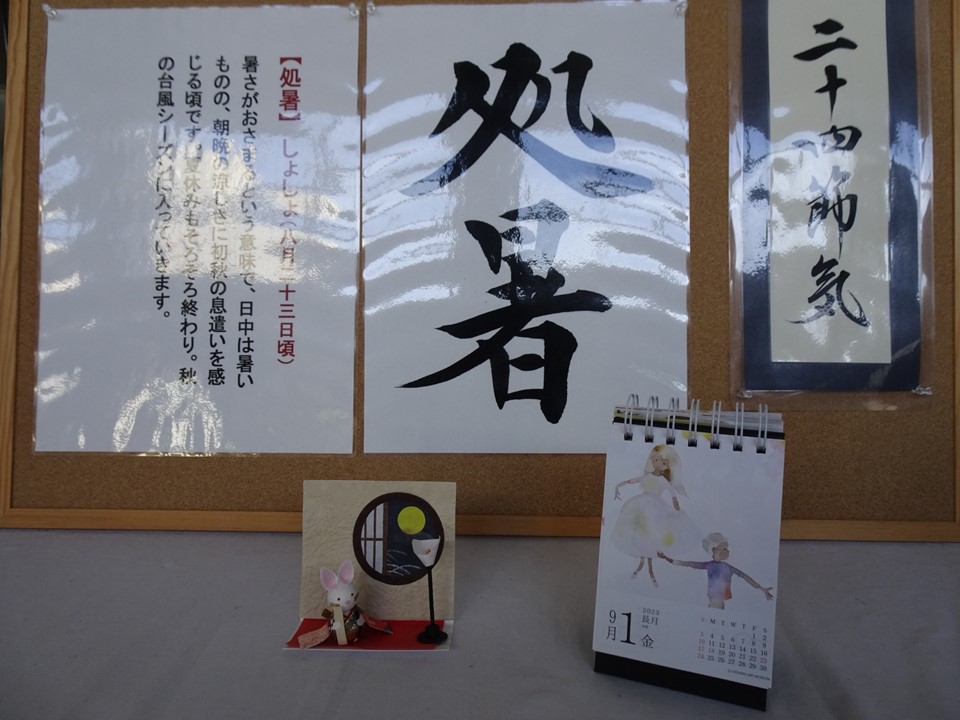 二十四節気
処暑
【処暑】 しょしょ（八月二十三日頃）
暑さがおさまるという意味で、日中は暑い
ものの、朝晩の涼しさに初秋の息遣いを感
じる頃です。夏休みもそろそろ終わり。秋
の台風シーズンに入っていきます。
2023
長月
9月 1 金
S M T W T F S
1 2
3 4 5 6 7 8 9
10 11 12 13 14 15 16
17 18 19 20 21 22 23
24 25 26 27 28 29 30